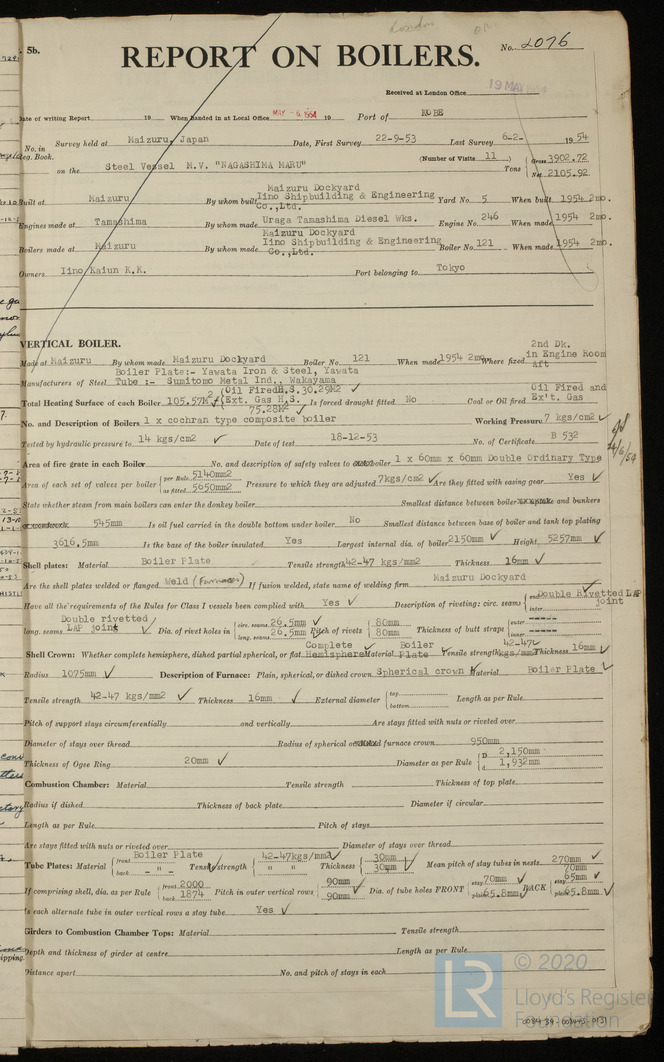 5b.
London
No. 2076
REPORT ON BOILERS.
Received at London Office 19 MAY 1954
Date of writing Report 19 When handed in at Local Office MAY -6 1954 19 Port of KOBE
No. in Reg. Book. Survey held at Maizuru, Japan Date, First Survey 22-9-53 Last Survey 6-2- 1954
on the Steel Vessel M.V. "NAGASHIMA MARU" (Number of Visits 11) Tons Gross 3902.72 Net 2105.92
Built at Maizuru By whom built Maizuru Dockyard Iino Shipbuilding & Engineering Co.,Ltd. Yard No. 5 When built 1954 2mo.
Engines made at Tamashima By whom made Uraga Tamashima Diesel Wks. Engine No. 246 When made 1954 2mo.
Boilers made at Maizuru By whom made Maizuru Dockyard Iino Shipbuilding & Engineering Co.,Ltd. Boiler No. 121 When made 1954 2mo.
Owners Iino Kaiun K.K. Port belonging to Tokyo
VERTICAL BOILER.
Made at Maizuru By whom made Maizuru Dockyard Boiler No. 121 When made 1954 2mo Where fixed 2nd Dk. in Engine Room Aft
Manufacturers of Steel Boiler Plate:- Yawata Iron & Steel, Yawata Tube :- Sumitomo Metal Ind., Wakayama
Total Heating Surface of each Boiler 105.57M2 (Oil Fired H.S. 30.29M2 ✓ Ext. Gas H.S. 75.28M2 ✓ Is forced draught fitted No Coal or Oil fired Oil Fired and Ex't. Gas
No. and Description of Boilers 1 x cochran type composite boiler Working Pressure 7 kgs/cm2 ✓
Tested by hydraulic pressure to 14 kgs/cm2 ✓ Date of test 18-12-53 No. of Certificate B 532
24/6/54
Area of fire grate in each Boiler No. and description of safety valves to boiler 1 x 60mm x 60mm Double Ordinary Type
Area of each set of valves per boiler {per Rule 5140mm2 as fitted 5650mm2 Pressure to which they are adjusted 7kgs/cm2 ✓ Are they fitted with easing gear Yes ✓
State whether steam from main boilers can enter the donkey boiler Smallest distance between boiler and bunkers
545mm Is oil fuel carried in the double bottom under boiler No Smallest distance between base of boiler and tank top plating
3616.5mm Is the base of the boiler insulated Yes Largest internal dia. of boiler 2150mm ✓ Height 5257mm ✓
Shell plates: Material Boiler Plate Tensile strength 42-47 kgs/mm2 Thickness 16mm ✓
Are the shell plates welded or flanged Weld (Furnaces) If fusion welded, state name of welding firm Maizuru Dockyard
Have all the requirements of the Rules for Class I vessels been complied with Yes ✓ Description of riveting: circ. seams {end Double Rivetted LAP joint inter.
long. seams Double rivetted LAP joint ✓ Dia. of rivet holes in {circ. seams 26.5mm ✓ long. seams 26.5mm Pitch of rivets {80mm 80mm Thickness of butt straps {outer ----- inner -----
Shell Crown: Whether complete hemisphere, dished partial spherical, or flat Complete Hemisphere Material Boiler Plate Tensile strength 42-47 kgs/mm2 Thickness 16mm ✓
Radius 1075mm ✓ Description of Furnace: Plain, spherical, or dished crown Spherical crown ✓ Material Boiler Plate ✓
Tensile strength 42-47 kgs/mm2 ✓ Thickness 16mm ✓ External diameter {top bottom Length as per Rule
Pitch of support stays circumferentially and vertically Are stays fitted with nuts or riveted over
Diameter of stays over thread Radius of spherical or furnace crown 950mm
Thickness of Ogee Ring 20mm ✓ Diameter as per Rule {D 2,150mm d 1,932mm
Combustion Chamber: Material Tensile strength Thickness of top plate
Radius if dished Thickness of back plate Diameter if circular
Length as per Rule Pitch of stays
Are stays fitted with nuts or riveted over Diameter of stays over thread
Tube Plates: Material {front Boiler Plate back - " - Tensile strength {42-47kgs/mm2 ✓ " " Thickness {30mm ✓ 30mm ✓ Mean pitch of stay tubes in nests 270mm ✓
If comprising shell, dia. as per Rule {front 2000 back 1874 Pitch in outer vertical rows {90mm 90mm ✓ Dia. of tube holes FRONT {stay 70mm ✓ plain 65.8mm ✓ BACK {stay 70mm 65mm ✓ plain 65.8mm ✓
Is each alternate tube in outer vertical rows a stay tube Yes ✓
Girders to Combustion Chamber Tops: Material Tensile strength
Depth and thickness of girder at centre Length as per Rule
Distance apart No. and pitch of stays in each
LR © 2020
Lloyd's Register
Foundation